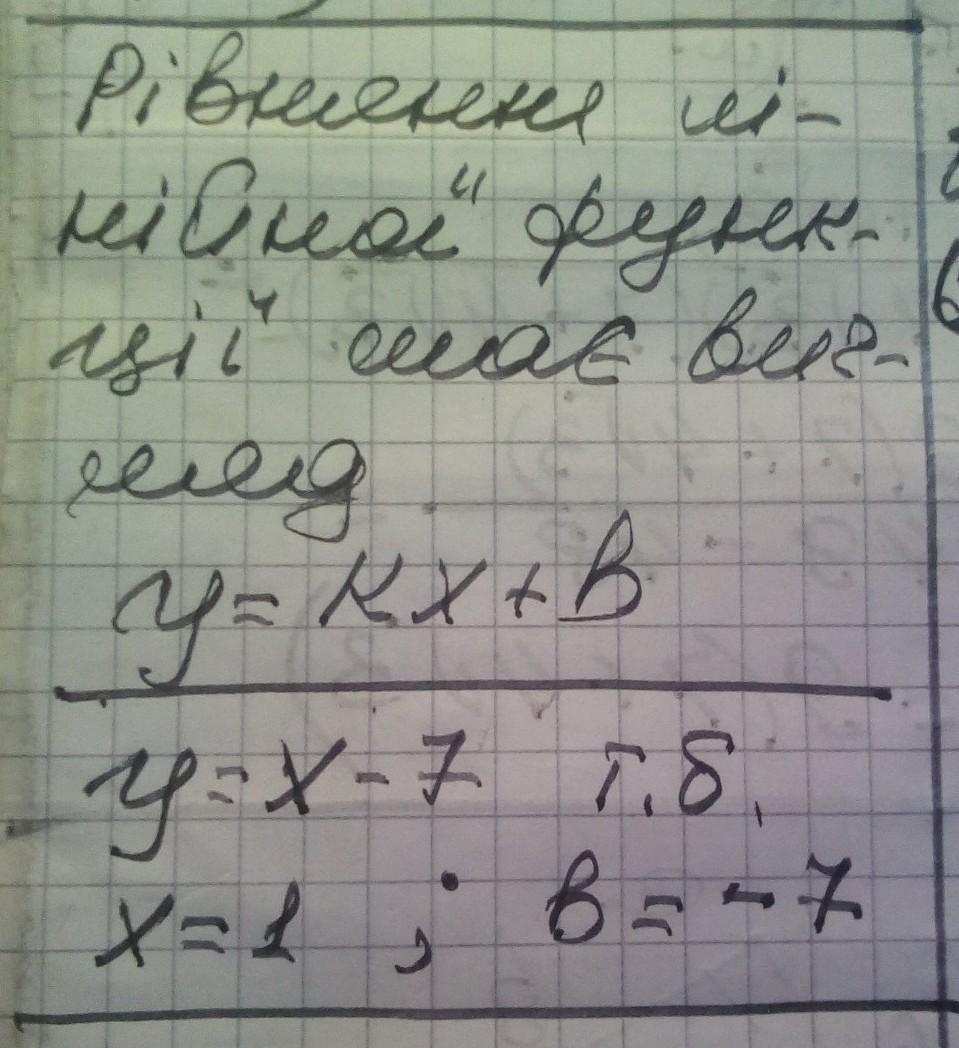 Рівняння лі-
нійної функ-
ції має виг-
ляд
y = кx + в
y = x - 7 т.б.
x = 1 ; в = - 7